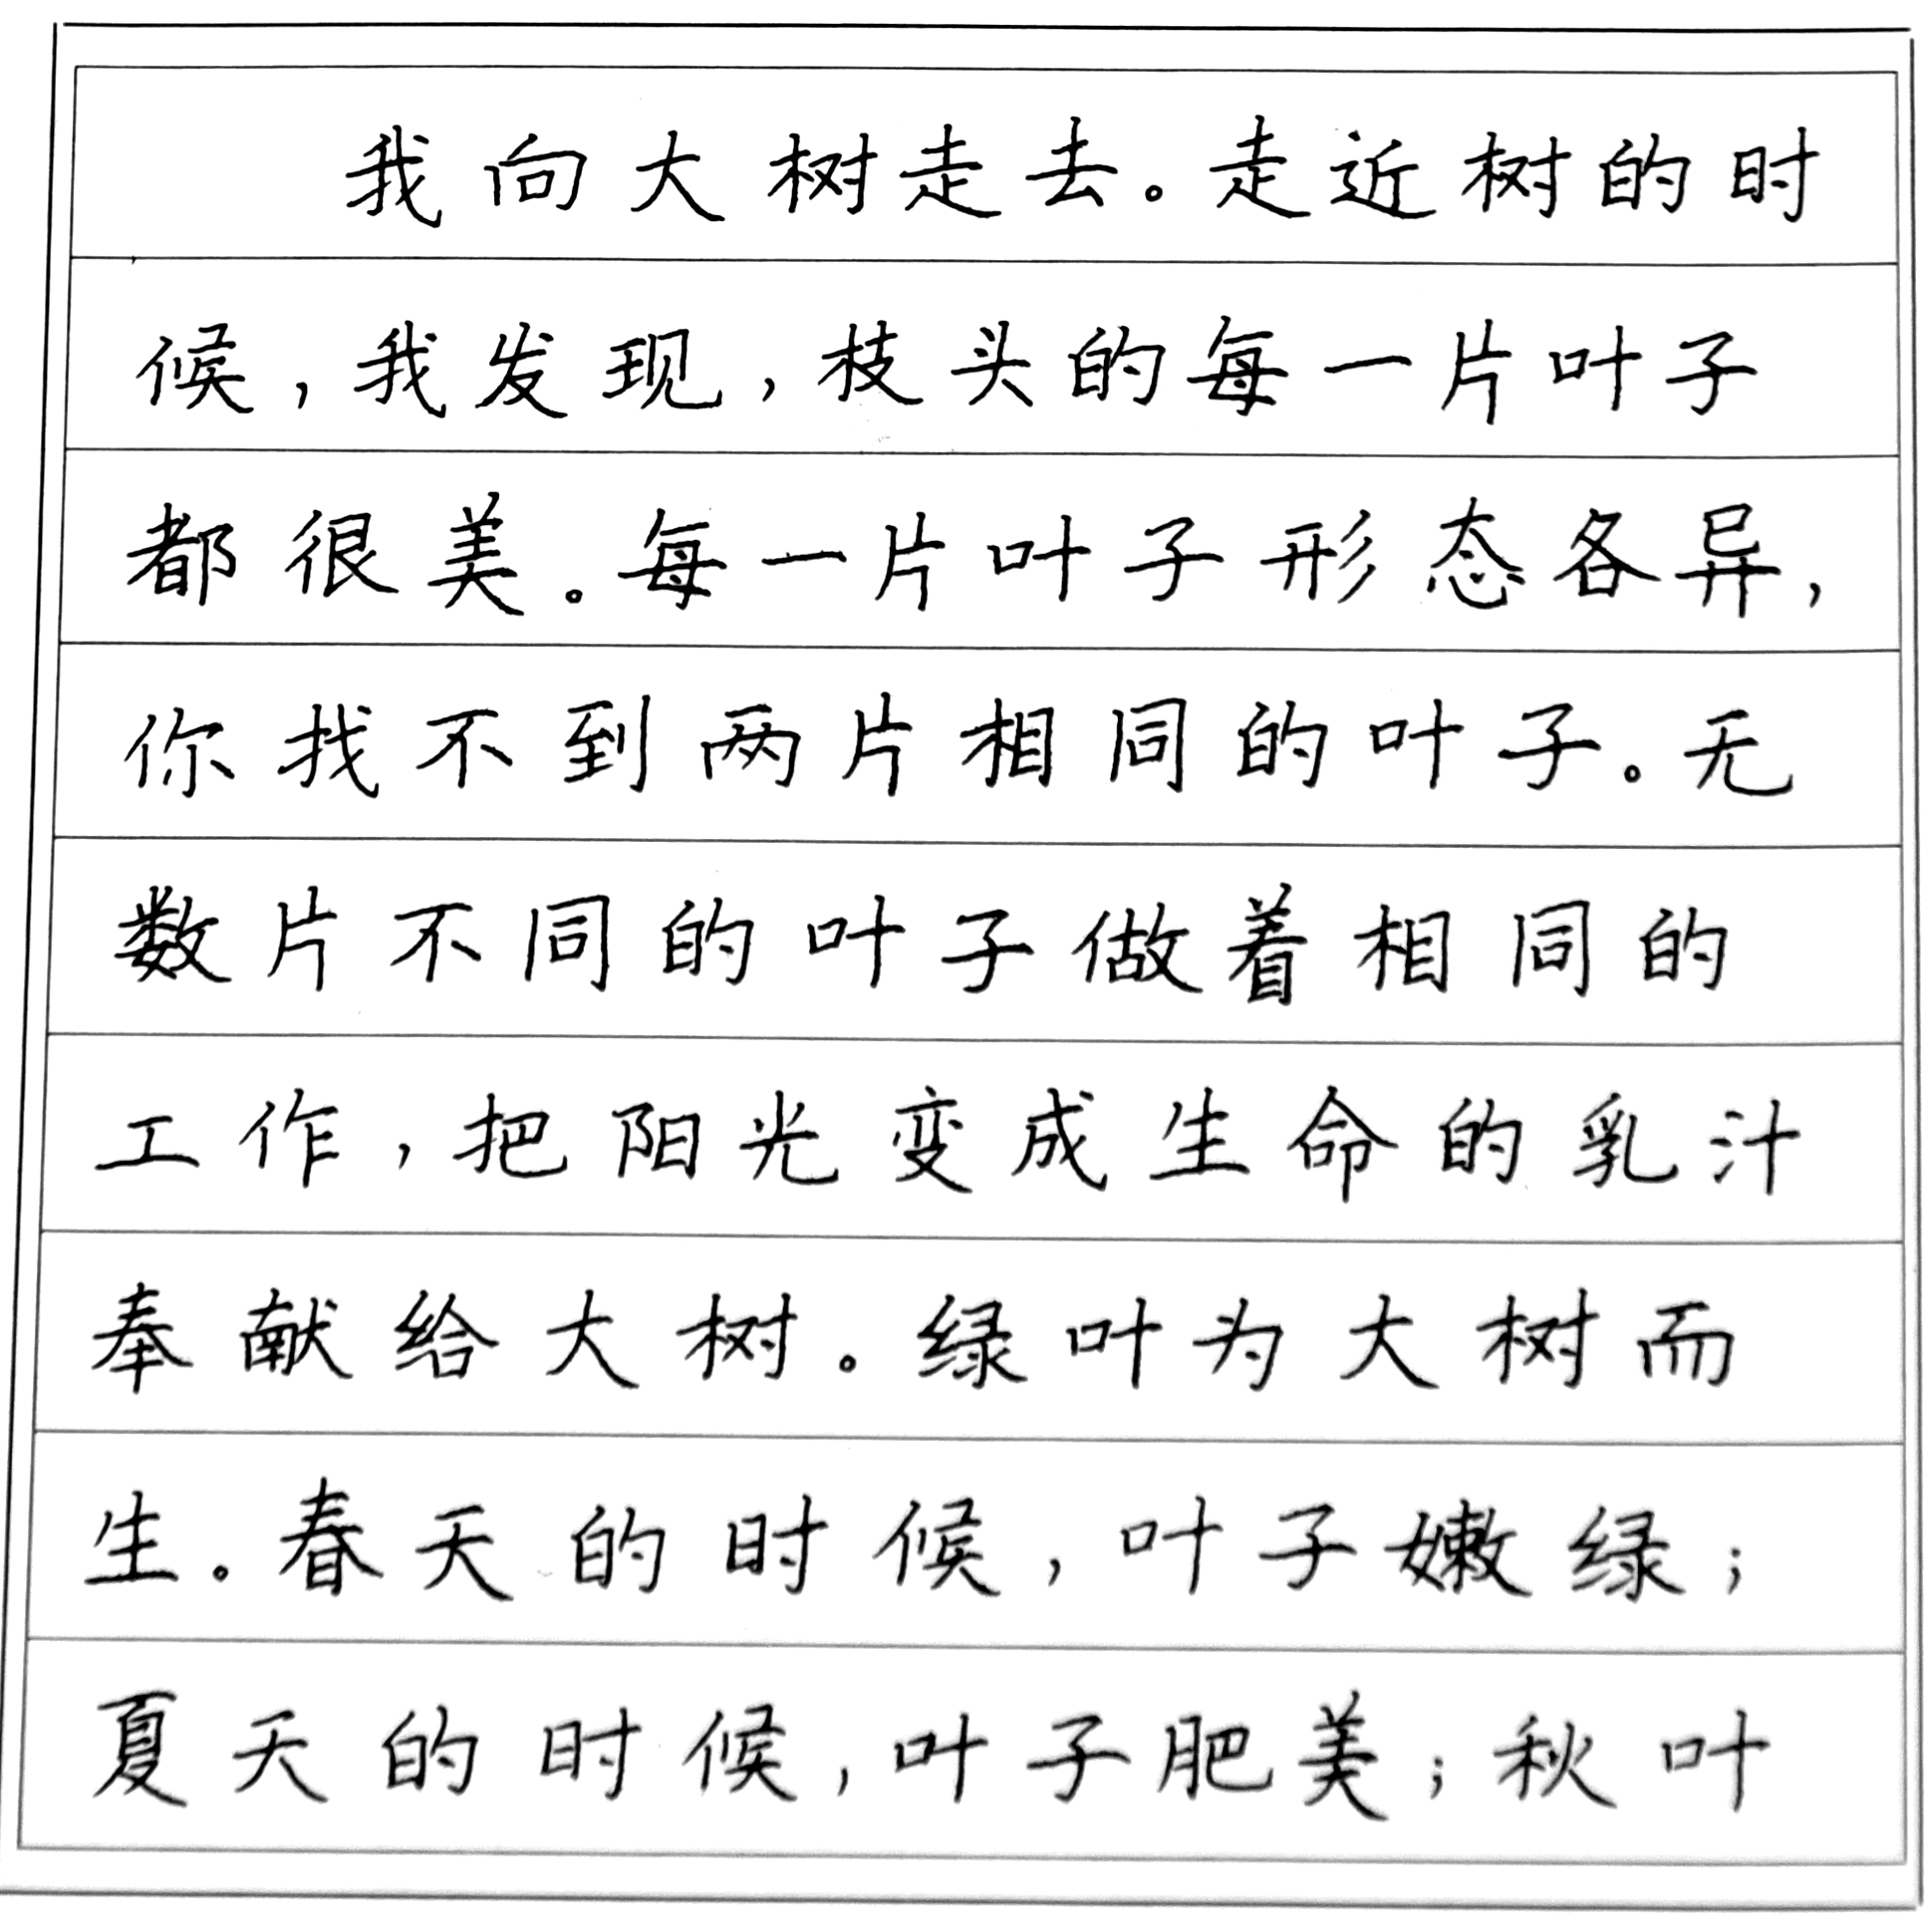 我向大树走去。走近树的时
候,我发现,枝头的每一片叶子
都很美。每一片叶子形态各异,
你找不到两片相同的叶子。无
数片不同的叶子做着相同的
工作,把阳光变成生命的乳汁
奉献给大树。绿叶为大树而
生。春天的时候,叶子嫩绿;
夏天的时候,叶子肥美;秋叶